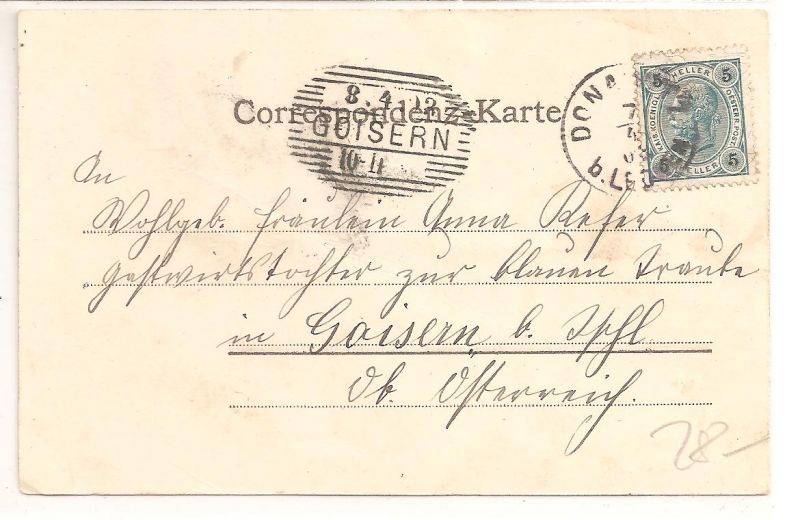 Correspondenz-Karte
8. 4. 02
GOISERN
10-11
DONA
5 HELLER 5
KAIS. KOENIGL.
OESTERR. POST.
5 HELLER 5
An
Wohlgeb. Fräulein Anna Refer
Gastwirtstochter zur blauen Traube
in Goisern b. Ischl
Ob. Österreich.
28-